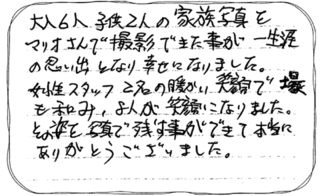 大人6人 子供2人の 家族写真を
マリオさんで撮影できた事が 一生涯
の思い出となり 幸せになりました。
女性スタッフ 2名の暖かい 笑顔で 場
も和み、 人が 笑顔になりました。
を写真で残す事ができて 本当に
ありがとうございました。